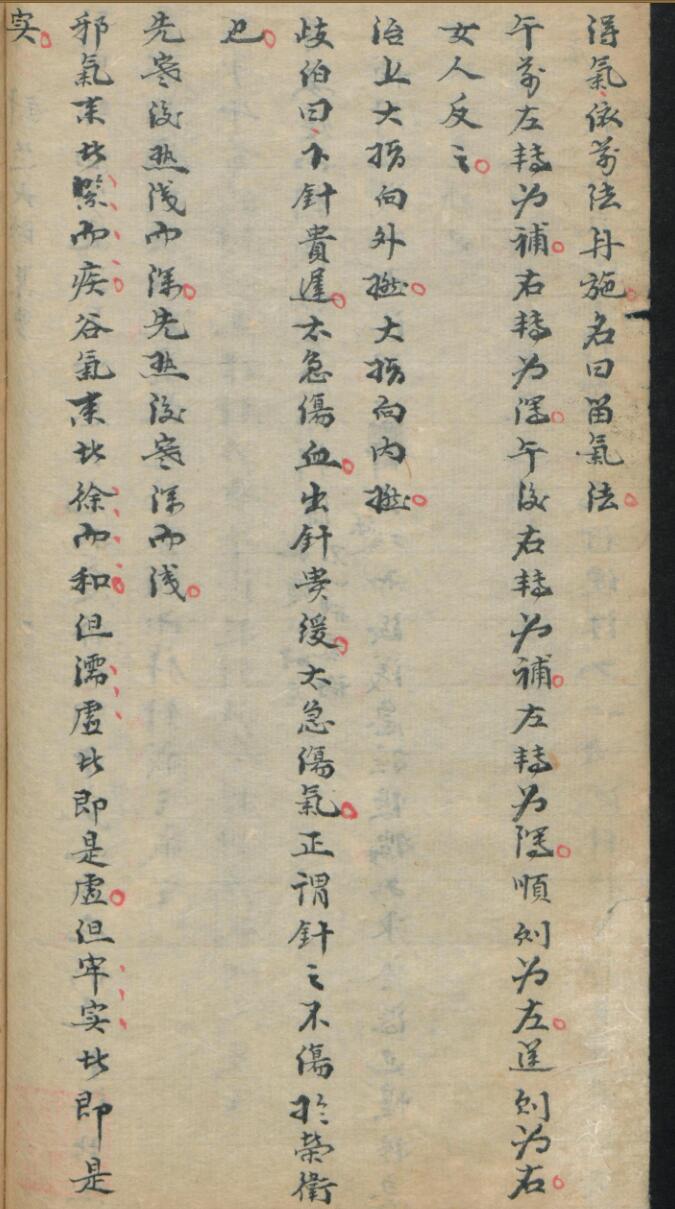 得氣依前法再施名曰留氣法
午前左轉为補右轉为瀉午後右轉为補左轉为瀉順則为左逆則为右
女人反之
治上大指向外撚大指向内撚
歧伯曰下針貴遲太急傷血出針貴緩太急傷氣正謂針之不傷於榮衛
也
先寒後热浅而深先热後寒深而浅
邪氣来也緊而疾谷氣来也徐而和但濡虚也即是虚但牢实也即是
实